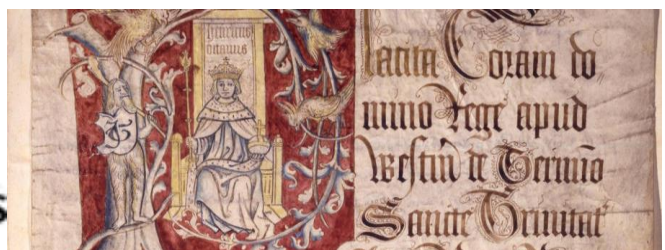 henricus
octavus
lacita Coram do
mino Rege apud
Westm̄ de Termino
Sancte Trinitat